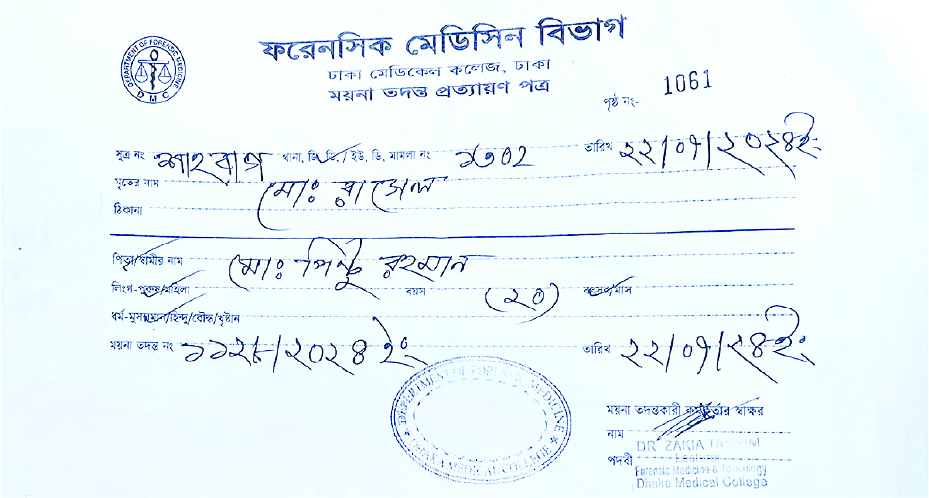 ফরেনসিক মেডিসিন বিভাগ
ঢাকা মেডিকেল কলেজ, ঢাকা
ময়না তদন্ত প্রত্যায়ণ পত্র
DEPARTMENT OF FORENSIC MEDICINE
D M C
পৃষ্ঠ নং- 1061
সূত্র নং শাহবাগ থানা, জি, ডি,/ ইউ, ডি, মামলা নং ১৩০২ তারিখ ২২/০৭/২০২৪ইং
মৃতের নাম মোঃ রাসেল
ঠিকানা
পিতা/স্বামীর নাম মোঃ পিন্টু রহমান
লিংগ-পুরুষ/মহিলা বয়স (২০) বৎসর/মাস
ধর্ম-মুসলমান/হিন্দু/বৌদ্ধ/খৃষ্টান
ময়না তদন্ত নং /২০২৪ইং তারিখ ২২/০৭/২৪ইং
DEPARTMENT OF FORENSIC MEDICINE
DHAKA MEDICAL COLLEGE
ময়না তদন্তকারী কর্মকর্তার স্বাক্ষর
নাম
DR. ZAKIA
পদবী
Lecturer
Forensic Medicine & Toxicology
Dhaka Medical College